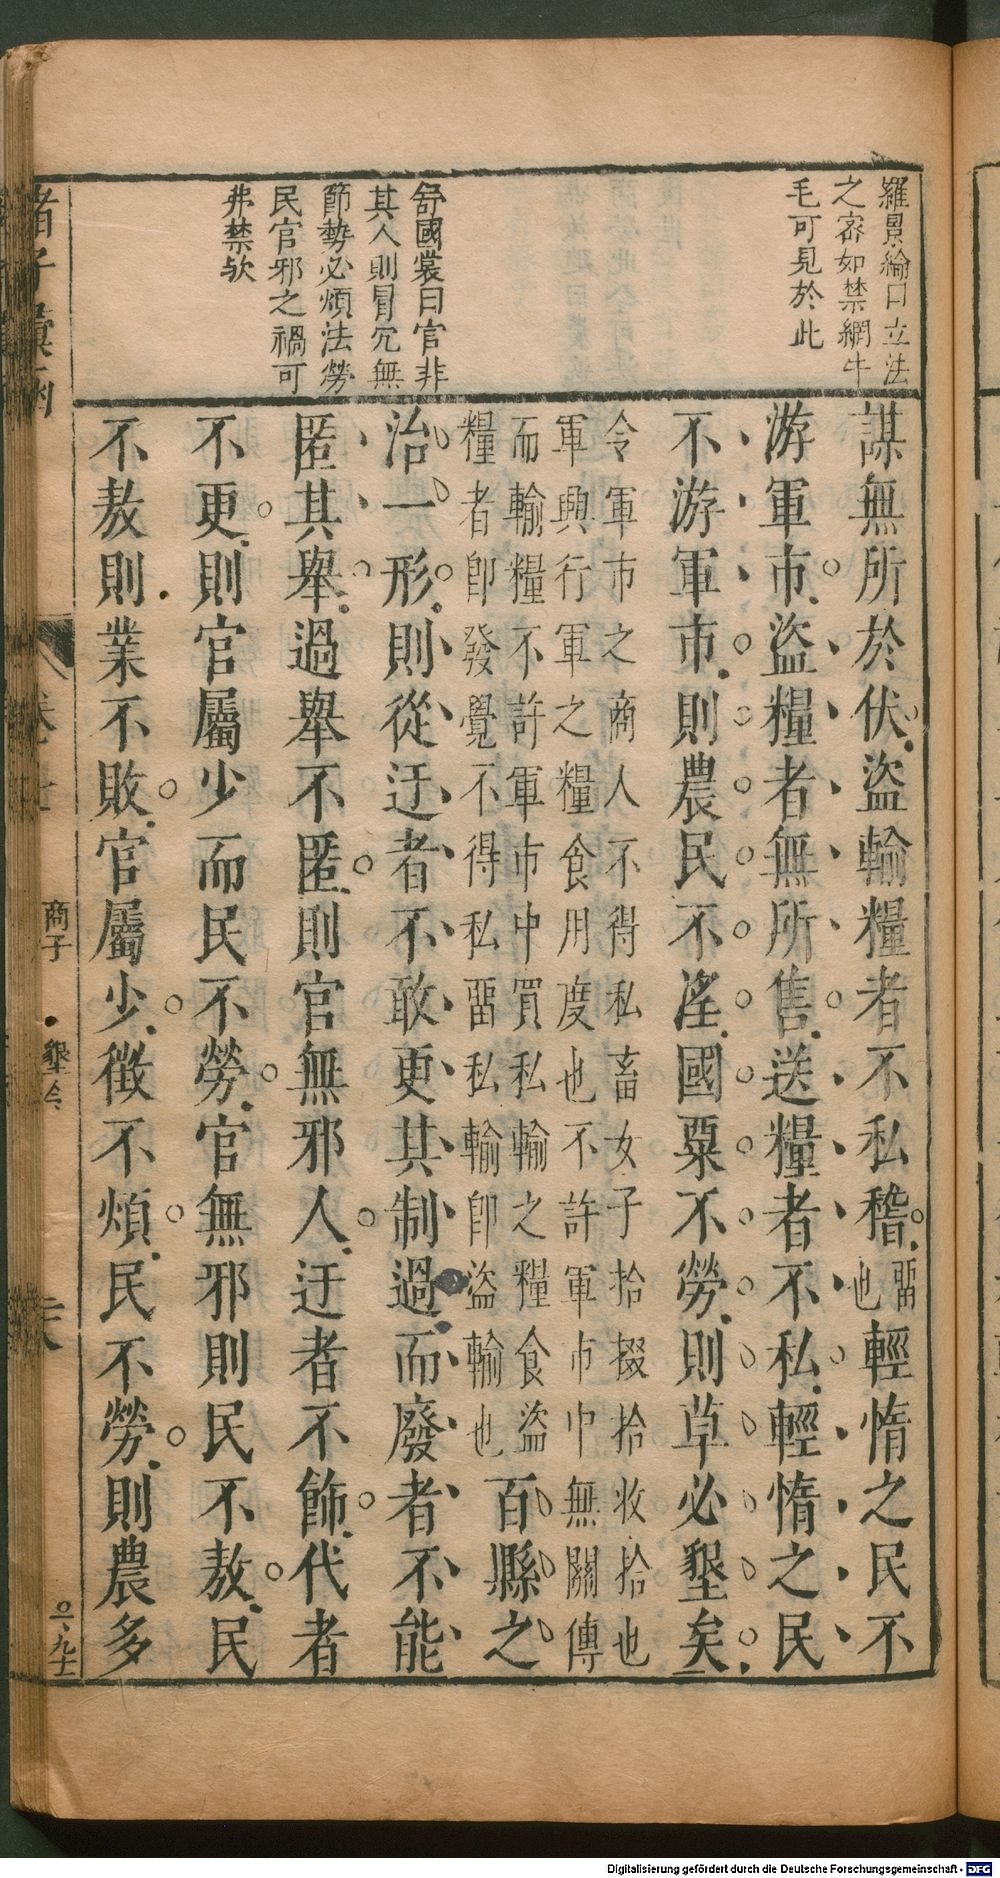 羅景綸曰立法
之密如禁網牛
毛可見於此
舒國裳曰官非
其人則冒冗無
節勢必煩法勞
民官邪之禍可
弗禁欤
謀無所於伏盜輸糧者不私稽畱也輕惰之民不
游軍市盜糧者無所售送糧者不私輕惰之民
不游軍市則農民不淫國粟不勞則草必墾矣
令軍市之商人不得私畜女子拾掇拾收拾也
軍興行軍之糧食用度也不許軍市中無關傳
而輸糧不許軍市中買私輸之糧食盜
糧者卽發覺不得私畱私輸卽盜輸也
百縣之
治一形則從迂者不敢更其制過而廢者不能
匿其舉過舉不匿則官無邪人迂者不飾代者
不更則官屬少而民不勞官無邪則民不敖民
不敖則業不敗官屬少徵不煩民不勞則農多
諸子彙函
商子
墾令
Digitalisierung gefördert durch die Deutsche Forschungsgemeinschaft - DFG